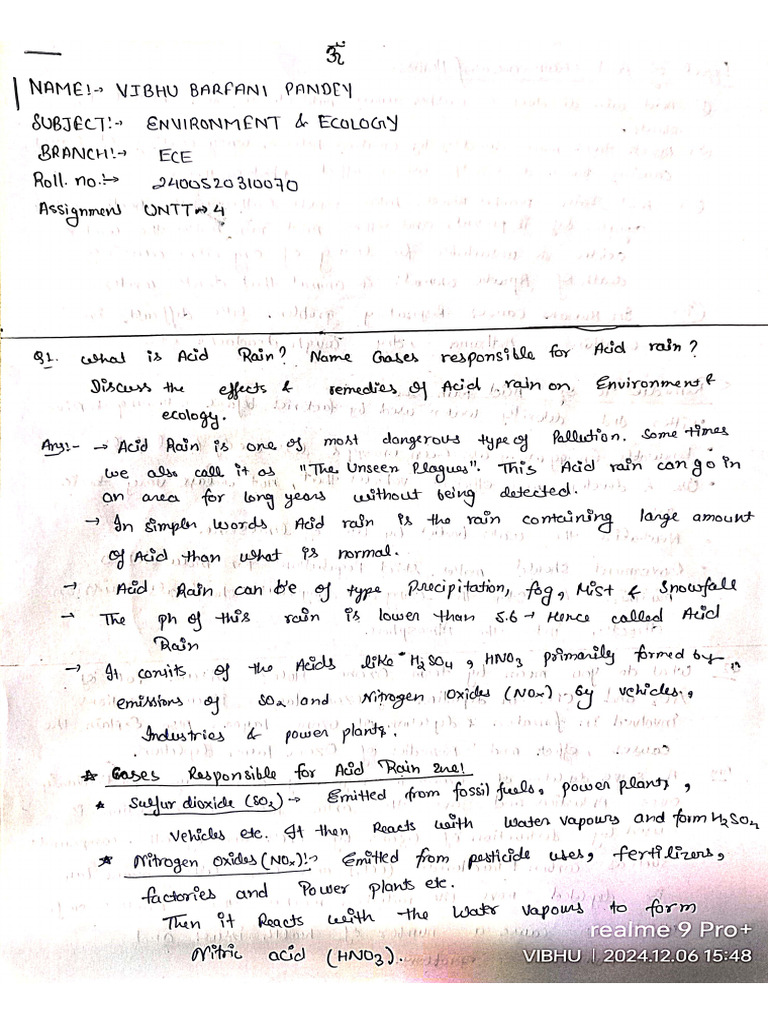 ॐ
NAME:→ VIBHU BARFANI PANDEY
SUBJECT:→ ENVIRONMENT & ECOLOGY
BRANCH:→ ECE
Roll. no.:→ 2400520310070
Assignment UNIT→4
Q1. What is Acid Rain? Name Gases responsible for Acid rain?
Discuss the effects & remedies of Acid rain on Environment &
ecology.
Ans:- → Acid Rain is one of most dangerous type of Pollution. Some times
we also call it as "The Unseen Plagues". This Acid rain can go in
an area for long years without being detected.
→ In simpler words Acid rain is the rain containing large amount
of Acid than what is normal.
→ Acid Rain can be of type Precipitation, fog, Mist & Snowfall
→ The ph of this rain is lower than 5.6 → Hence called Acid
Rain
→ It consits of the Acids like H₂SO₄, HNO₃ primarily formed by
emissions of SO₂ and Nitrogen Oxides (NOx) by vehicles,
Industries & power plants.
* Gases Responsible for Acid Rain are!
* Sulfur dioxide (SO₂) → Emitted from fossil fuels, power plants,
vehicles etc. It then Reacts with Water vapours and form H₂SO₄
* Nitrogen oxides (NOx):- Emitted from pesticide uses, fertilizers,
factories and Power plants etc.
Then it Reacts with the Water vapours to form
Nitric acid (HNO₃).
realme 9 Pro+
VIBHU | 2024.12.06 15:48